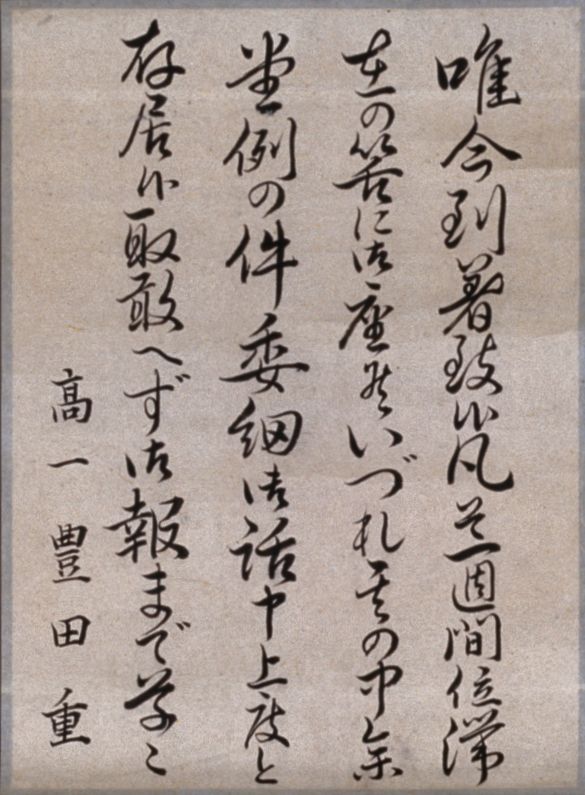 唯今到著致候凡そ一週間位滞
在の筈に御座候いづれ其の中参
堂例の件委細御話申上度と
存居候取敢へず御報まで草々
髙一 豊田重